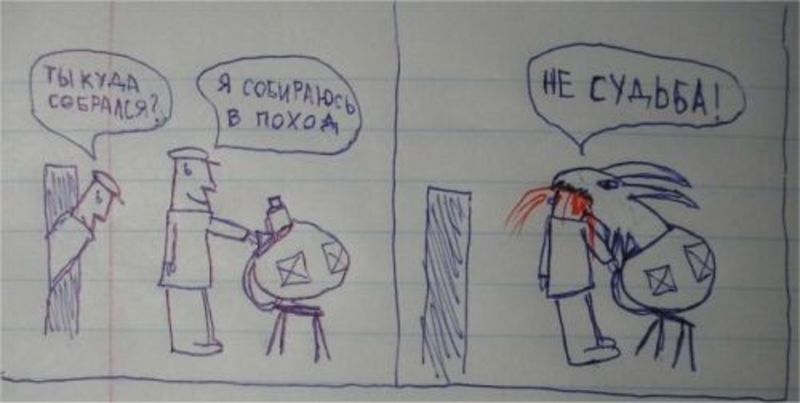 ТЫ КУДА
СОБРАЛСЯ?
Я СОБИРАЮСЬ
В ПОХОД
НЕ СУДЬБА!